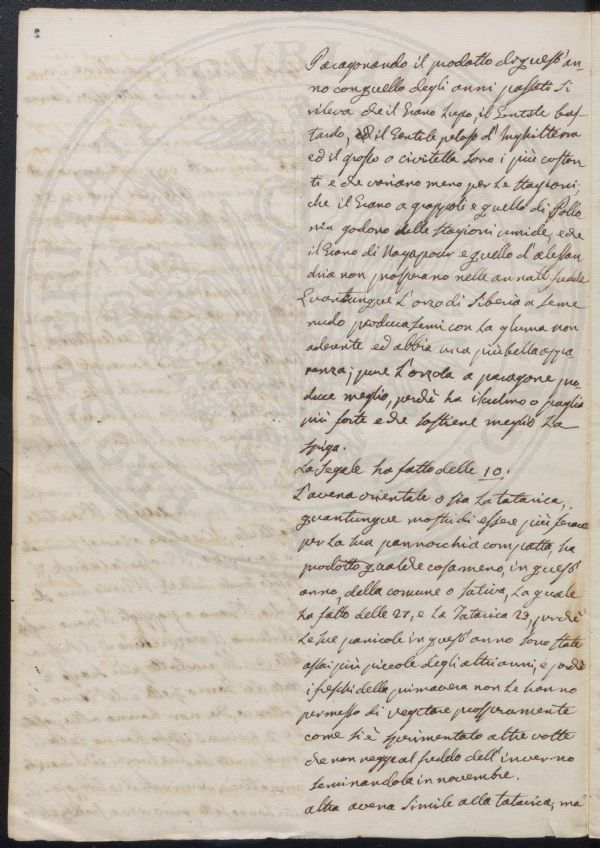 2
Paragonando il prodotto di quest' an-
no con quello degli anni passati si
rileva che il Grano Lupo, il Gentile bas-
tardo, ed il Gentile peloso d'Inghilterra
ed il grosso o civitella sono i più costan-
ti e che variano meno per le stagioni;
che il Grano a grappoli e quello di Pollo
nia godono delle stagioni umide, e che
il Grano di Nagapour e quello d'alessan-
dria non prosperano nelle annate fredde
Quantunque l'orzo di Siberia a seme
nudo produca semi con la gluma non
aderente ed abbia una più bella appa
renza; pure l'orzola a paragone pro-
duce meglio, perchè ha il culmo o paglia
più forte e che sostiene meglio la
spiga.
La Segale ha fatto delle 10.
L'avena orientale o sia la tatarica,
quantunque mostri di essere più ferace
per la sua pannocchia compatta, ha
prodotto qualche cosa meno, in quest'
anno, della comune o sativa, la quale
ha fatto delle 27, e la Tatarica 23, perchè
le sue panicole in quest' anno sono state
assai più piccole degli altri anni, e perchè
i freschi della primavera non le hanno
permesso di vegetare prosperamente
come si è sperimentato altre volte
che non regge al freddo dell'inverno
seminandola in novembre.
altra avena simile alla tatarica, ma